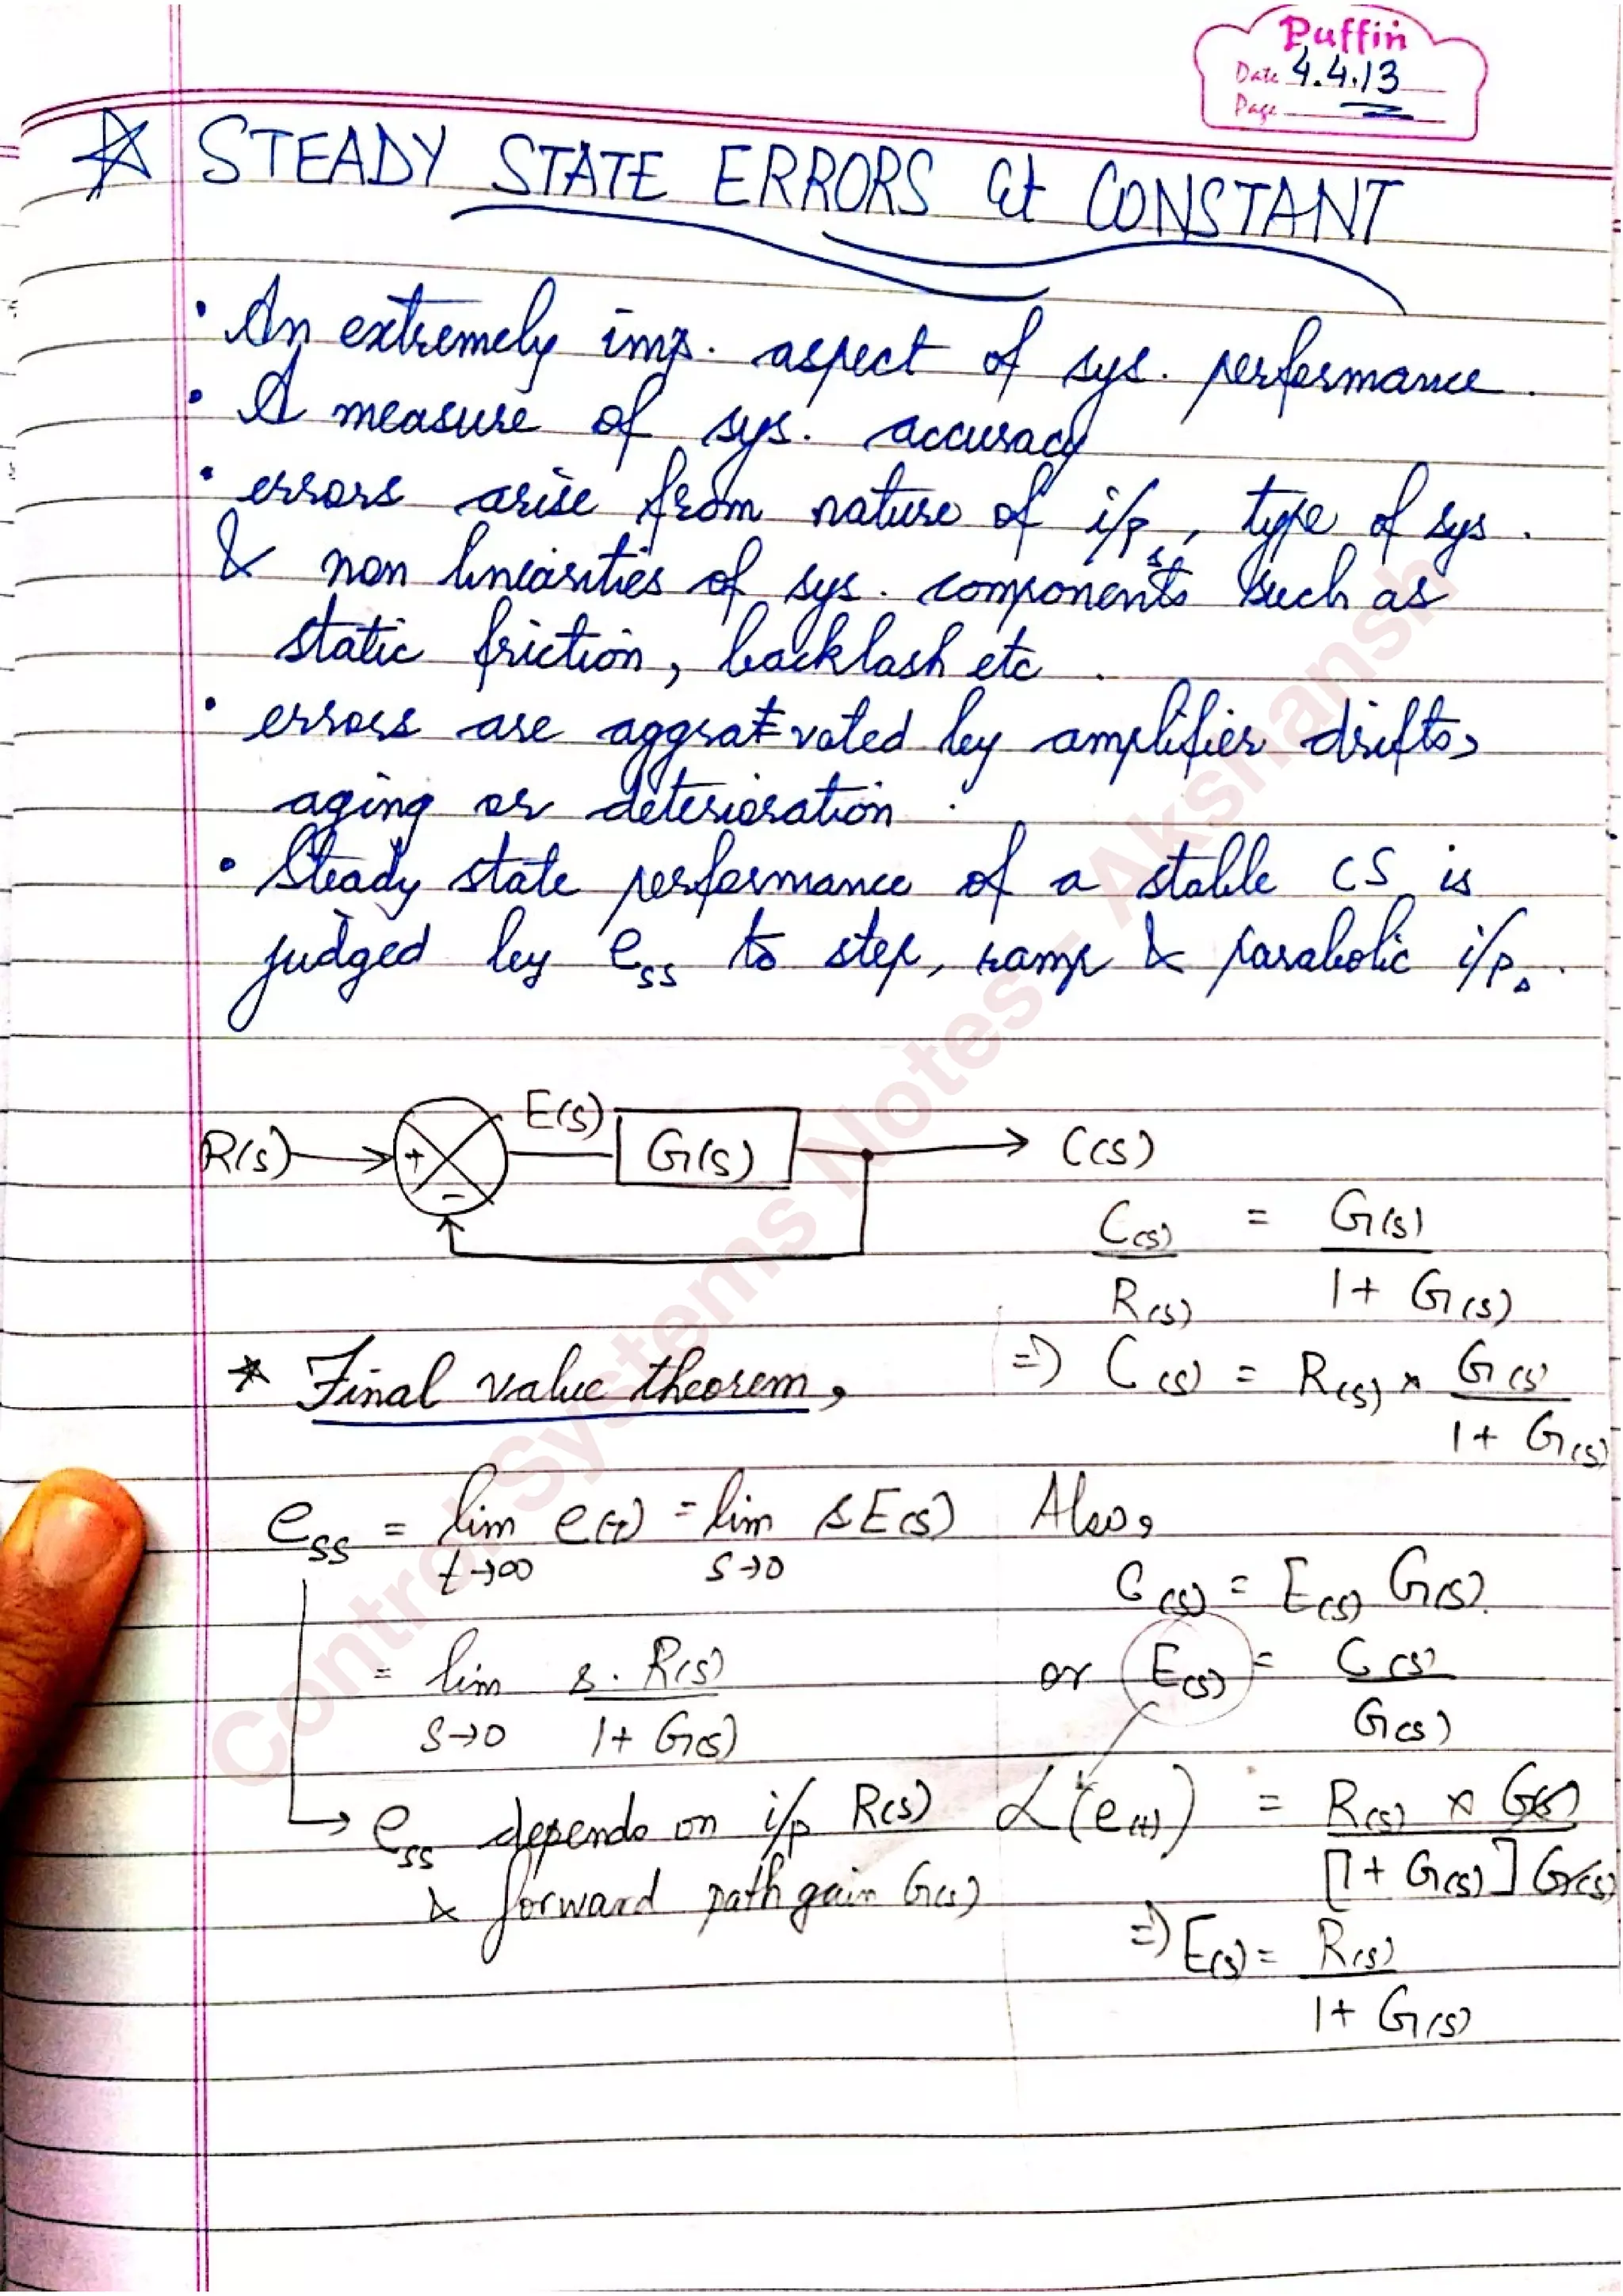 Puffin
Date 4.4.13
Page
☆ STEADY STATE ERRORS at CONSTANT
• An extremely imp. aspect of sys. performance.
• A measure of sys. accuracy
• errors arise from nature of i/p, type of sys.
& non linearities of sys. components such as
static friction, backlash etc.
• errors are aggravated by amplifier drifts,
aging or deterioration.
• Steady state performance of a stable CS is
judged by ess to step, ramp & parabolic i/ps.
R(s) + - E(s) G(s) C(s)
C(s)/R(s) = G(s)/1 + G(s)
* Final value theorem,
=> C(s) = R(s) × G(s)/1 + G(s)
ess = lim t→∞ e(t) = lim s→0 sE(s)
= lim s→0 s. R(s)/1 + G(s)
ess depends on i/p R(s)
& forward path gain G(s)
Also,
C(s) = E(s) G(s).
or E(s) = C(s)/G(s)
L(e(t)) = R(s) × G(s)/[1 + G(s)] G(s)
=> E(s) = R(s)/1 + G(s)
Control Systems Notes - Akshansh